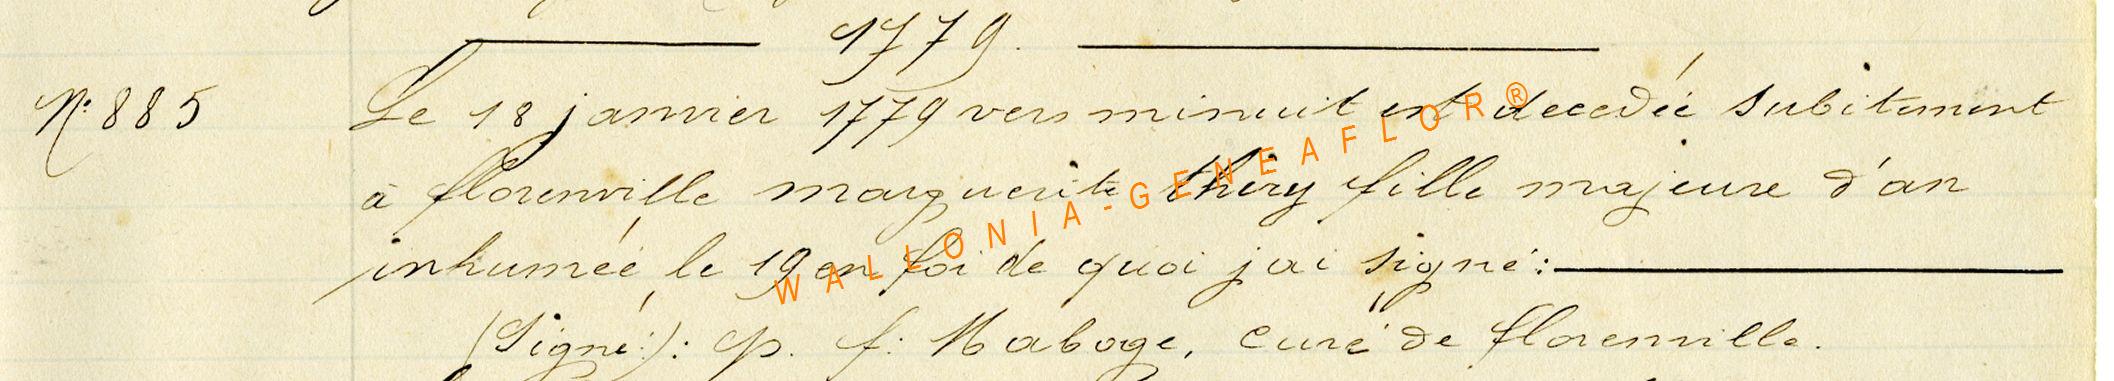 1779.
N° 885 Le 18 janvier 1779 vers minuit est decedée subitement
à florenville marguerite thiry fille majeure d'an
inhumée le 19 en foi de quoi jai signé:
(Signé:): p. f. Maboge, Curé de florenville.
WALLONIA-GENEAFLOR®